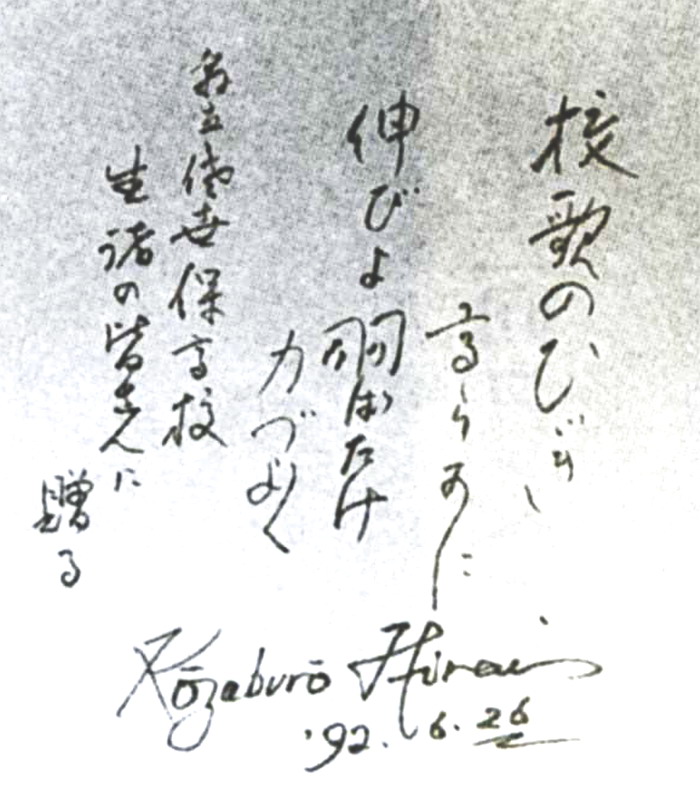 校歌のひびき
高らかに
伸びよ羽ばたけ
力づよく
立佐世保高校
生徒の皆さんに
贈る
Kōzaburō Hirai
'92. 6. 26